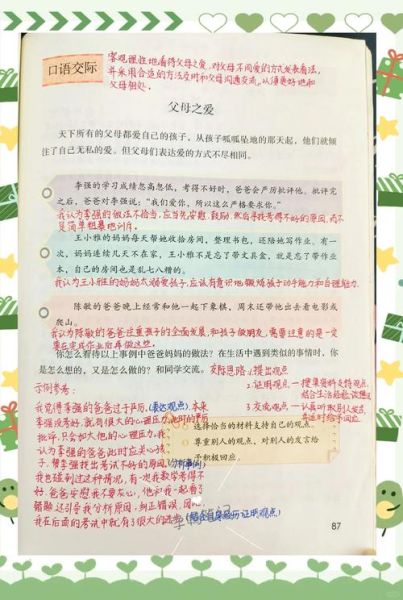 口语交际
客观理性地看待父母之爱，对父母不同爱的方式发表看法，
并采用合适的方法及时和父母沟通交流，从而更好地和
父母相处。
父母之爱
天下所有的父母都爱自己的孩子，从孩子呱呱坠地的那天起，他们就倾
注了自己无私的爱。但父母们表达爱的方式不尽相同。
李强的学习成绩忽高忽低，考得不好时，爸爸会严厉批评他。批评完
之后，爸爸对李强说：“我们爱你，所以这么严格要求你。”
我认为李强的做法不恰当，应当先安慰、鼓励，然后寻找考得不好的原因，而不
是简单粗暴地训斥。
王小雅的妈妈每天帮她收拾房间，整理书包，还陪她写作业。有一
次，妈妈连续几天不在家，王小雅不是忘了带文具盒，就是忘了带作业
本，自己的房间也是乱七八糟的。
我认为王小雅的妈妈太溺爱孩子，应该有意识地锻炼孩子动手能力和自理能力。
陈敏的爸爸晚上经常和他一起下象棋，周末还带他出去看电影或
爬山。
我认为陈敏的爸爸注重孩子的全面发展，和孩子做朋友，需要注意的是一定
要在完成作业后再做这些。
你怎么看待以上事例中爸爸妈妈的做法？在生活中遇到类似的事情时，你
是怎么想的，又是怎么做的？和同学交流。
交际思路：1 提出观点
2 证明观点 — 搜集资料支持观点，
结合生活经验谈想法
3 交流观点 — 认真听取别人发言，
适时给予回应
示例参考：
我觉得李强的爸爸过于严厉，（表达观点）本来
李强没考好，就有很大的心理压力，此时的严厉
批评，只会加大他的心理压力，我
认为李强的爸爸此时应关心孩
子，帮李强找出考试不好的原因，（分析事例）
我也碰到过这种情况，有一次我数学考得不
好，爸爸安慰我不要灰心，他和我一起看了
错题，还引导我分析原因，纠正错误，
我在后面的考试中就有了很大的进步。（结合自身经历证明观点）
选择恰当的材料支持自己的观点。
尊重别人的观点，对别人的发言给
予积极回应。
87